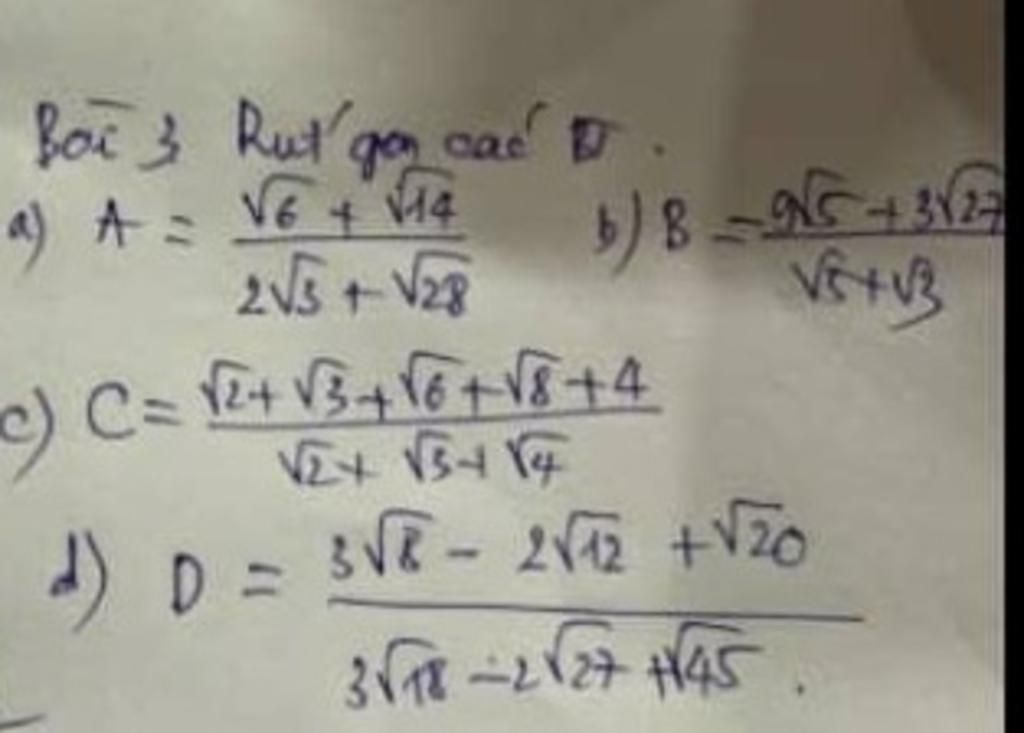 Bài 3 Rút gọn các BT.
a) A = (√6 + √14)/(2√3 + √28) b) B = (9√5 + 3√27)/(√5 + √3)
c) C = (√2 + √3 + √6 + √8 + 4)/(√2 + √3 + √4)
d) D = (3√8 - 2√12 + √20)/(3√18 - 2√27 + √45).